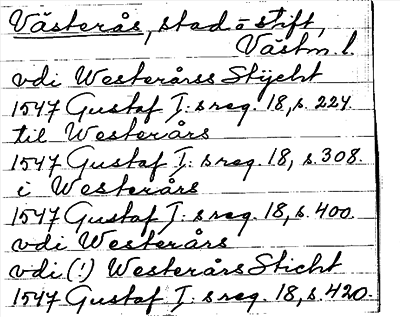 Västerås, stad o stift,
Västm. l.
vdi Westerårss Stijcht
1547 Gustaf I:s reg. 18, s. 224.
til Westerårs
1547 Gustaf I:s reg. 18, s. 308.
i Westerårs
1547 Gustaf I:s reg. 18, s. 400.
vdi Westerårs
vdi (!) Westerårs Sticht
1547 Gustaf I:s reg. 18, s. 420.